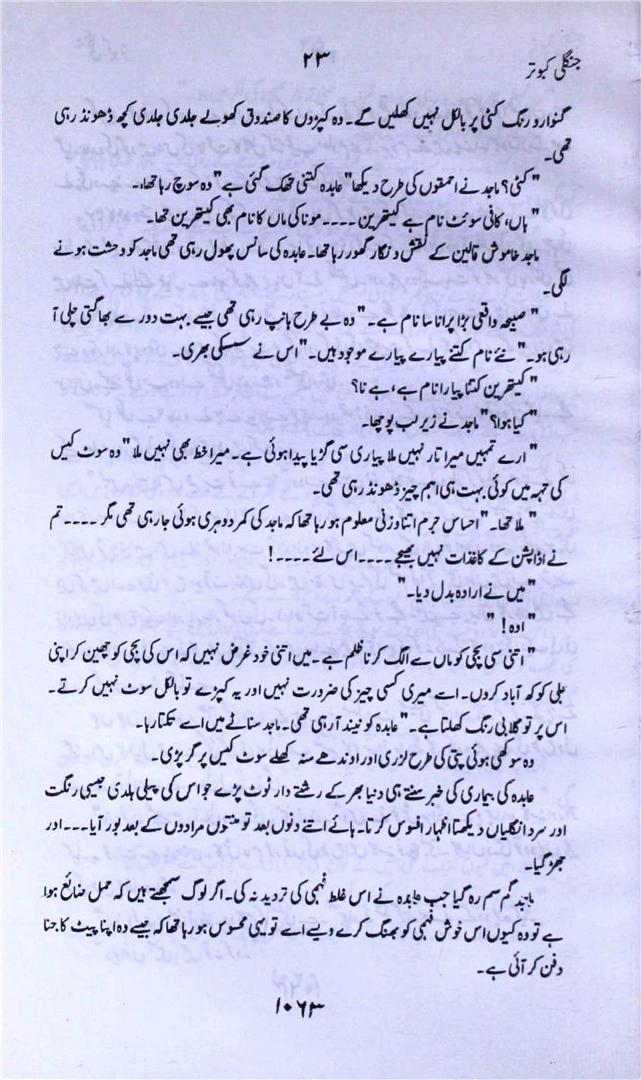 جنگلی کبوتر
۲۳
گنوارو رنگ کٹی پر بالکل نہیں کھلیں گے۔ وہ کپڑوں کا صندوق کھولے جلدی جلدی کچھ ڈھونڈ رہی
تھی۔
"کٹی؟ ماجد نے احمقوں کی طرح دیکھا" عابدہ کتنی تھک گئی ہے" وہ سوچ رہا تھا۔
"ہاں، کافی سوئٹ نام ہے کیتھرین ۔۔۔۔ مونا کی ماں کا نام بھی کیتھرین تھا۔
ماجد خاموش قالین کے نقش و نگار گھور رہا تھا۔ عابدہ کی سانس پھول رہی تھی ماجد کو وحشت ہونے
لگی۔
"صبیحہ واقعی بڑا پرانا سا نام ہے۔" وہ بے طرح ہانپ رہی تھی جیسے بہت دور سے بھاگتی چلی آ
رہی ہو۔" نئے نام کتنے پیارے پیارے موجود ہیں۔" اس نے سسکی بھری۔
"کیتھرین کتنا پیارا نام ہے، ہے نا؟
"کیا ہوا؟" ماجد نے زیر لب پوچھا۔
"ارے تمہیں میرا تار نہیں ملا پیاری سی گڑیا پیدا ہوئی ہے۔ میرا خط بھی نہیں ملا" وہ سوٹ کیس
کی تہہ میں کوئی بہت ہی اہم چیز ڈھونڈ رہی تھی۔
"ملا تھا۔" احساس جرم اتنا وزنی معلوم ہو رہا تھا کہ ماجد کی کمر دوہری ہوئی جا رہی تھی مگر ۔۔۔۔ تم
نے اڈاپشن کے کاغذات نہیں بھیجے ۔۔۔۔ اس لئے ۔۔۔۔!
"میں نے ارادہ بدل دیا۔"
"اوہ!"
"اتنی سی بچی کو ماں سے الگ کرنا ظلم ہے۔ میں اتنی خود غرض نہیں کہ اس کی بچی کو چھین کر اپنی
جلی کوکھ آباد کروں۔ اسے میری کسی چیز کی ضرورت نہیں اور یہ کپڑے تو بالکل سوٹ نہیں کرتے۔
اس پر تو گلابی رنگ کھلتا ہے۔" عابدہ کو نیند آ رہی تھی۔ ماجد سناٹے میں اسے تکتا رہا۔
وہ سوکھی ہوئی پتی کی طرح لرزی اور اوندھے منہ کھلے سوٹ کیس پر گر پڑی۔
عابدہ کی بیماری کی خبر سنتے ہی دنیا بھر کے رشتے دار ٹوٹ پڑے جو اس کی پیلی ہلدی جیسی رنگت
اور سرد انگلیاں دیکھتا اظہار افسوس کرتا۔ ہائے اتنے دنوں بعد تو منتوں مرادوں کے بعد بور آیا ۔۔۔ اور
جھڑ گیا۔
ماجد گم سم رہ گیا جب عابدہ نے اس غلط فہمی کی تردید نہ کی۔ اگر لوگ سمجھتے ہیں کہ حمل ضائع ہوا
ہے تو وہ کیوں اس خوش فہمی کو بھنگ کرے ویسے اسے تو یہی محسوس ہو رہا تھا کہ جیسے وہ اپنا پیٹ کا جنا
دفن کر آئی ہے۔
۱۰۶۳